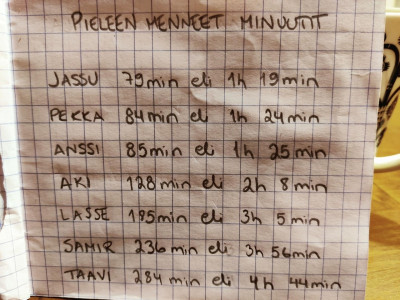 PIELEEN MENNEET MINUUTIT
JASSU 79min eli 1h 19min
PEKKA 84min eli 1h 24min
ANSSI 85min eli 1h 25min
AKI 128min eli 2h 8min
LASSE 185min eli 3h 5min
SAMIR 236min eli 3h 56min
TAAVI 284min eli 4h 44min